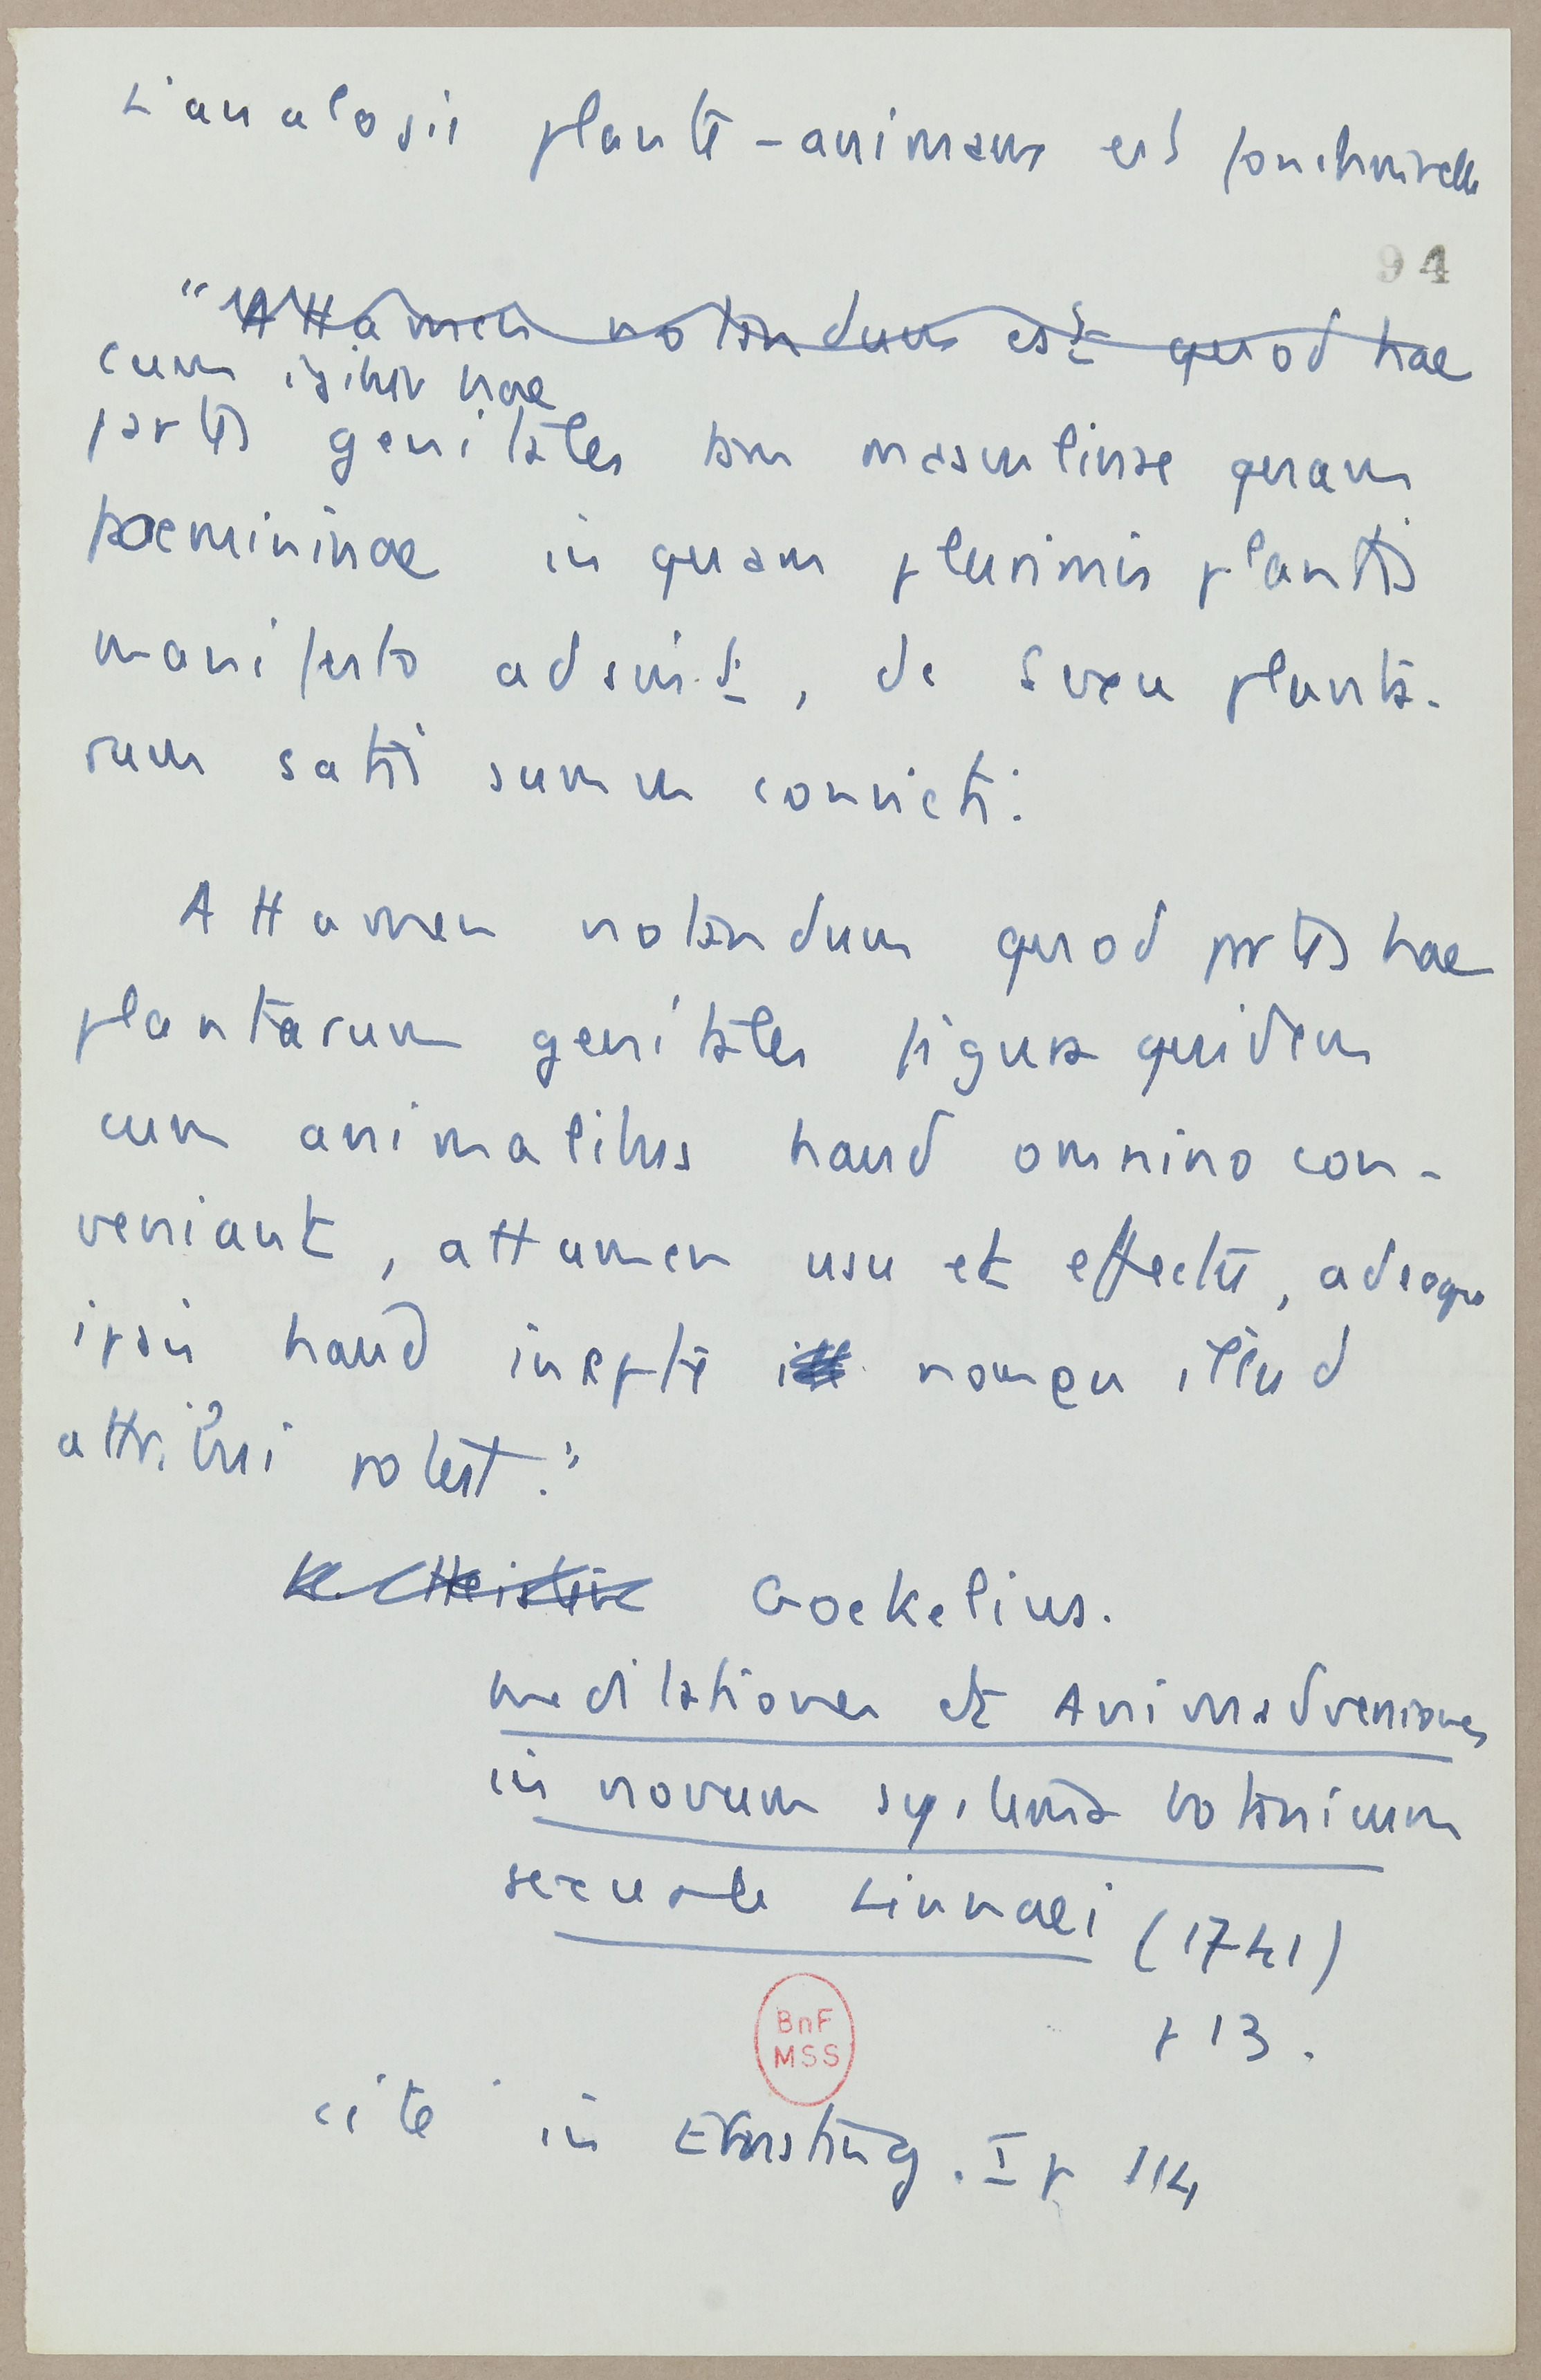 L'analogie plante-animaux est fonctionnelle
94
"Attamen notandum est quod hae
cum igitur hae
partes genitales tam masculinae quam
foemininae in quam plurimis plantis
manifesto adsint, de sexu planta-
rum satis sumus convicti.
Attamen notandum quod partes hae
plantarum genitales figura quidem
cum animalibus haud omnino con-
veniant, attamen usu et effectu, adeoque
ipsis haud inepte nomen illud
attribui potest."
Heister Goekelius.
Meditationes et Animadversiones
in novum systema botanicum
sexuale Linnaei (1741)
p 13.
BnF
MSS
cité in Ernsting. I p 114